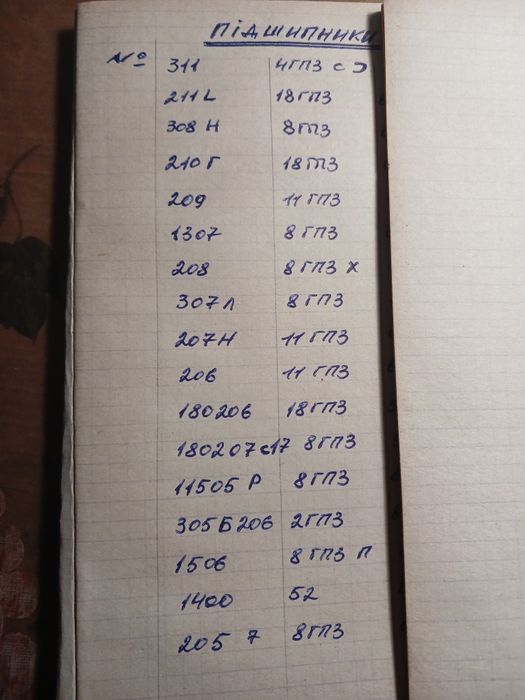 ПІДШИПНИКИ
№ 311 4ГПЗ С
211 L 18ГПЗ
308 Н 8ГПЗ
210 Г 18ГПЗ
209 11ГПЗ
1307 8ГПЗ
208 8ГПЗ Х
307 Л 8ГПЗ
207 Н 11ГПЗ
206 11ГПЗ
180206 18ГПЗ
180207с17 8ГПЗ
11505 Р 8ГПЗ
305Б206 2ГПЗ
1506 8ГПЗ П
1400 52
205 7 8ГПЗ